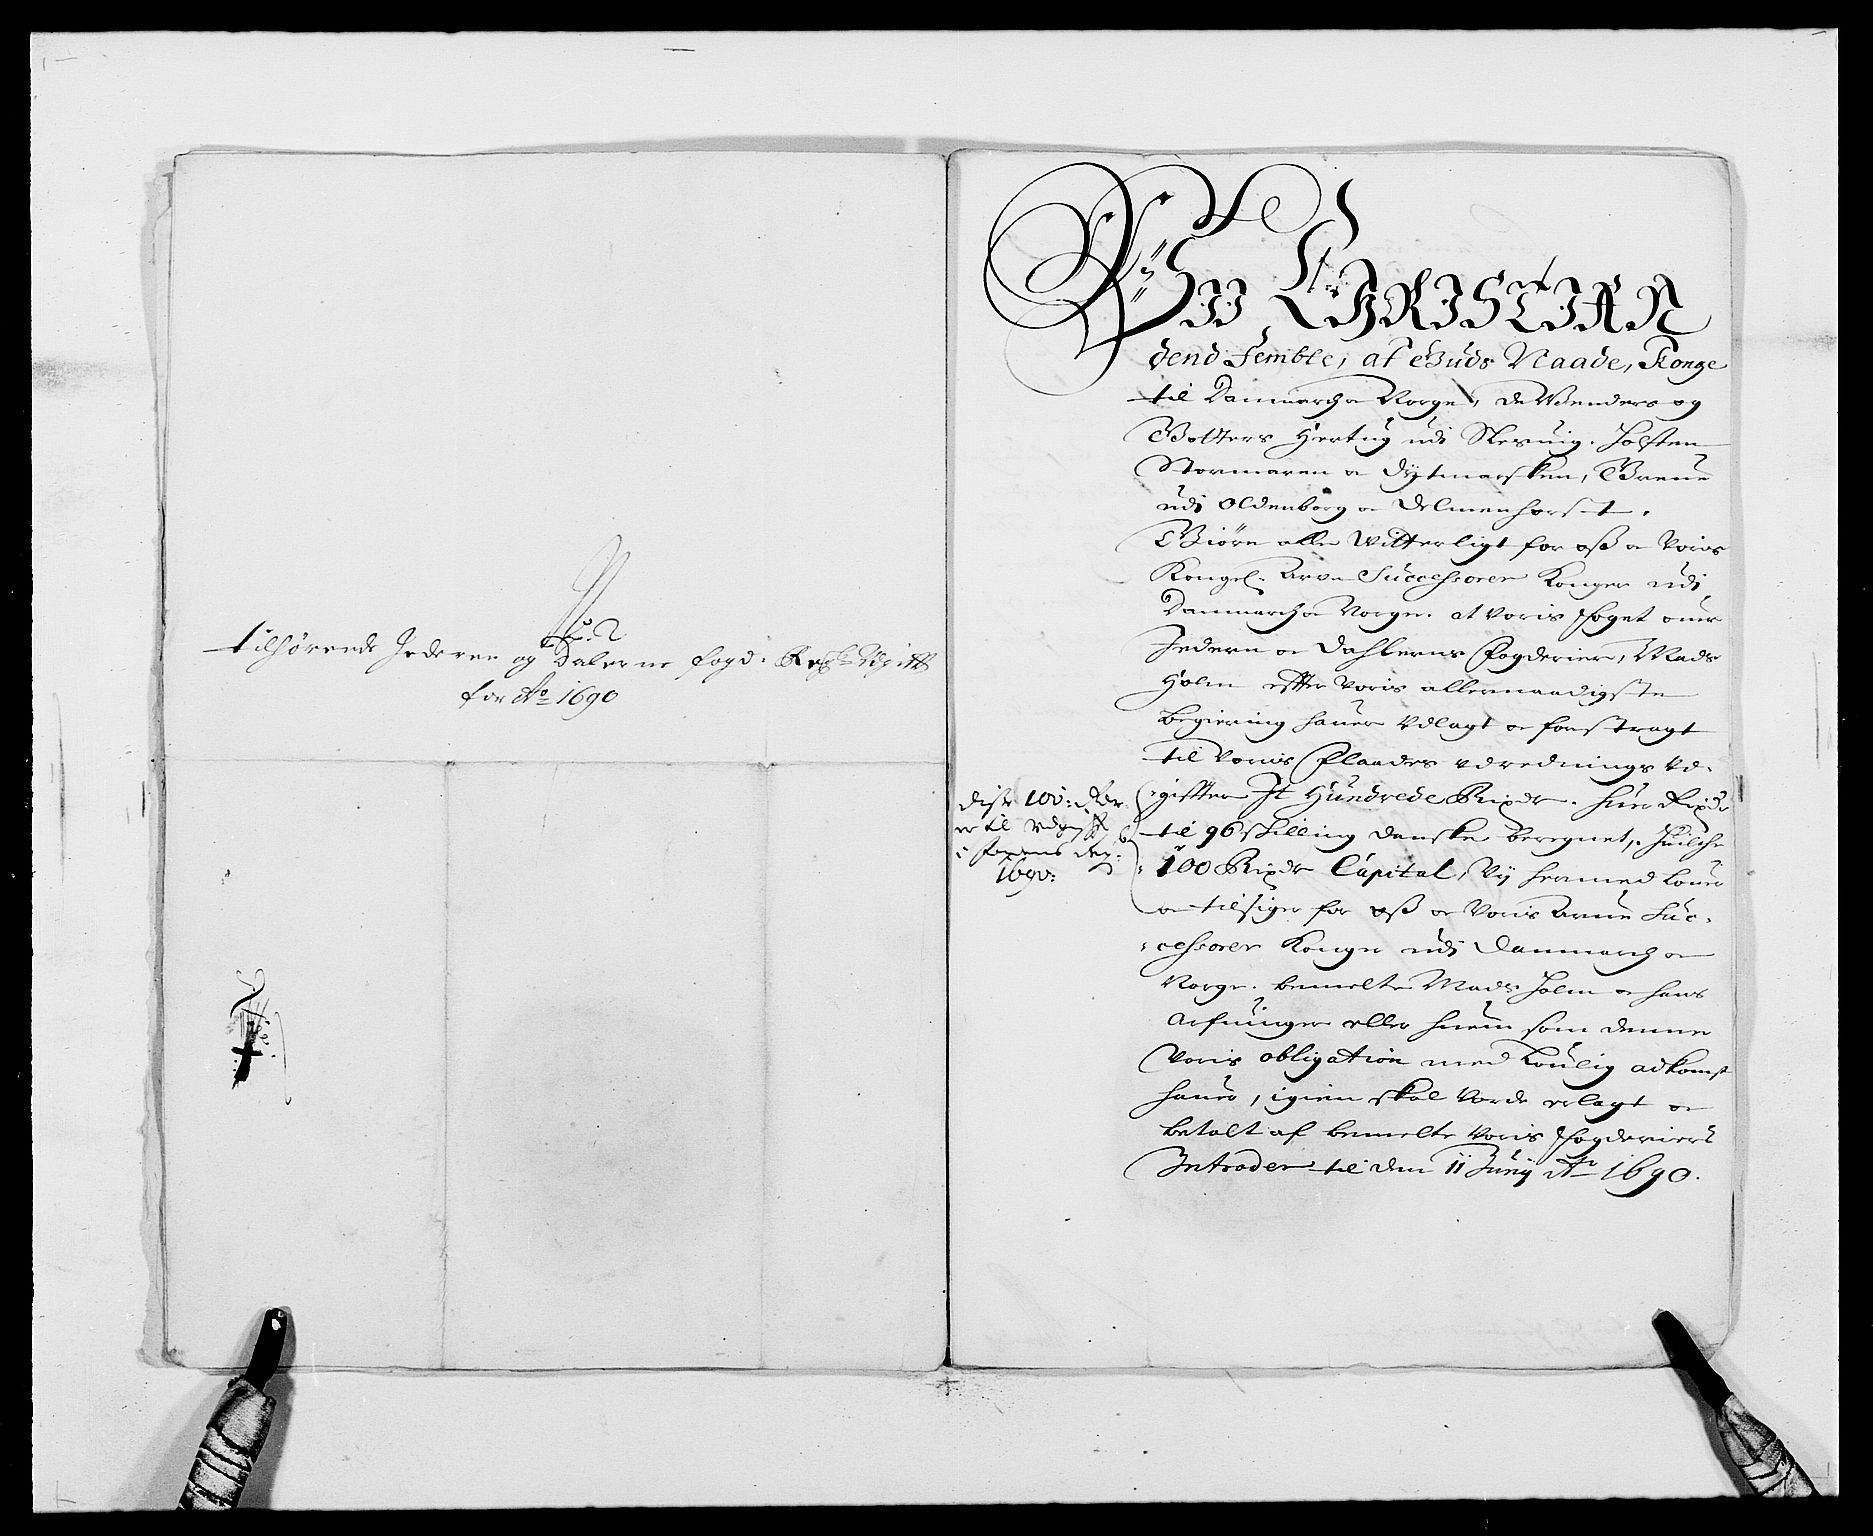 N: 2
tilhörende Jederen og Dalerne fogd: Regsk: Udgifft
for Ao 1690
Wii CHRISTIAN
dend Fembte, af Guds Naade, Konge
til Danmarch oc Norge, de Wenders og
Gotters Hertug udi Slesuig. Holsten
Stormaren oc Dytmarsken, Greue
udi Oldenborg oc Delmenhorst.
Giöre alle Witterligt for oß oc Voris
Kongel. Arve Successorer Konger udi
Danmarch oc Norge. at Voris Foget ouer
Jedern oc Dahlerns Fogderier, Mads
Holm effter Voris allernaadigste
begiering hauer Udlagt oc forstragt
til Voris Flaades udrednings Ud-
giffter Jt Hundrede Rixdr. huer Rixdr
til 96 skilling danske beregnet, huilche
100 Rixdr Capital, Vij hermed lover
oc tilsiger for oß oc Voris Arve Suc-
cessorer Konger udi Danmarch oc
Norge. bemelte Mads Holm oc hans
Arfuinger eller huem som denne
Voris obligation med Loulig adkomst
hauer, igien skal Vorde erlagt oc
betalt af bemelte Voris Fogderiers
Intrader til den 11 Junij Ao 1690.
disse 100: Rdr
er til udgifft
i forrens Reg:
1690: